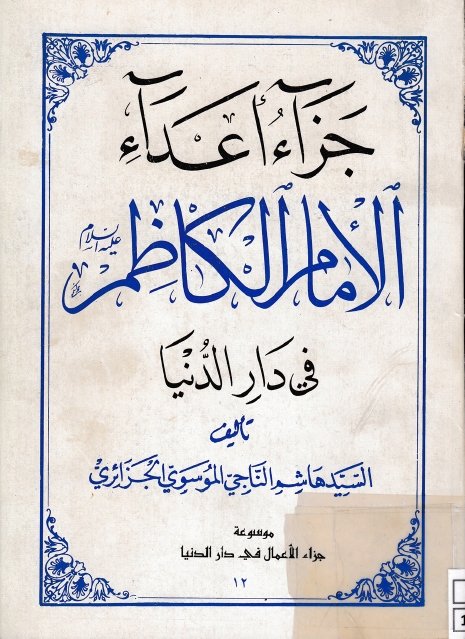 جَزَآءُ أَعْدَآءِ
الإمام الكاظم عليه السلام
في دَارِ الدُّنْيَا
تأليف
السَّيِّد هَاشِم النَّاجي المُوسَوِي الجَزَائِري
موسوعة
جزاء الأعمال في دار الدنيا
١٢